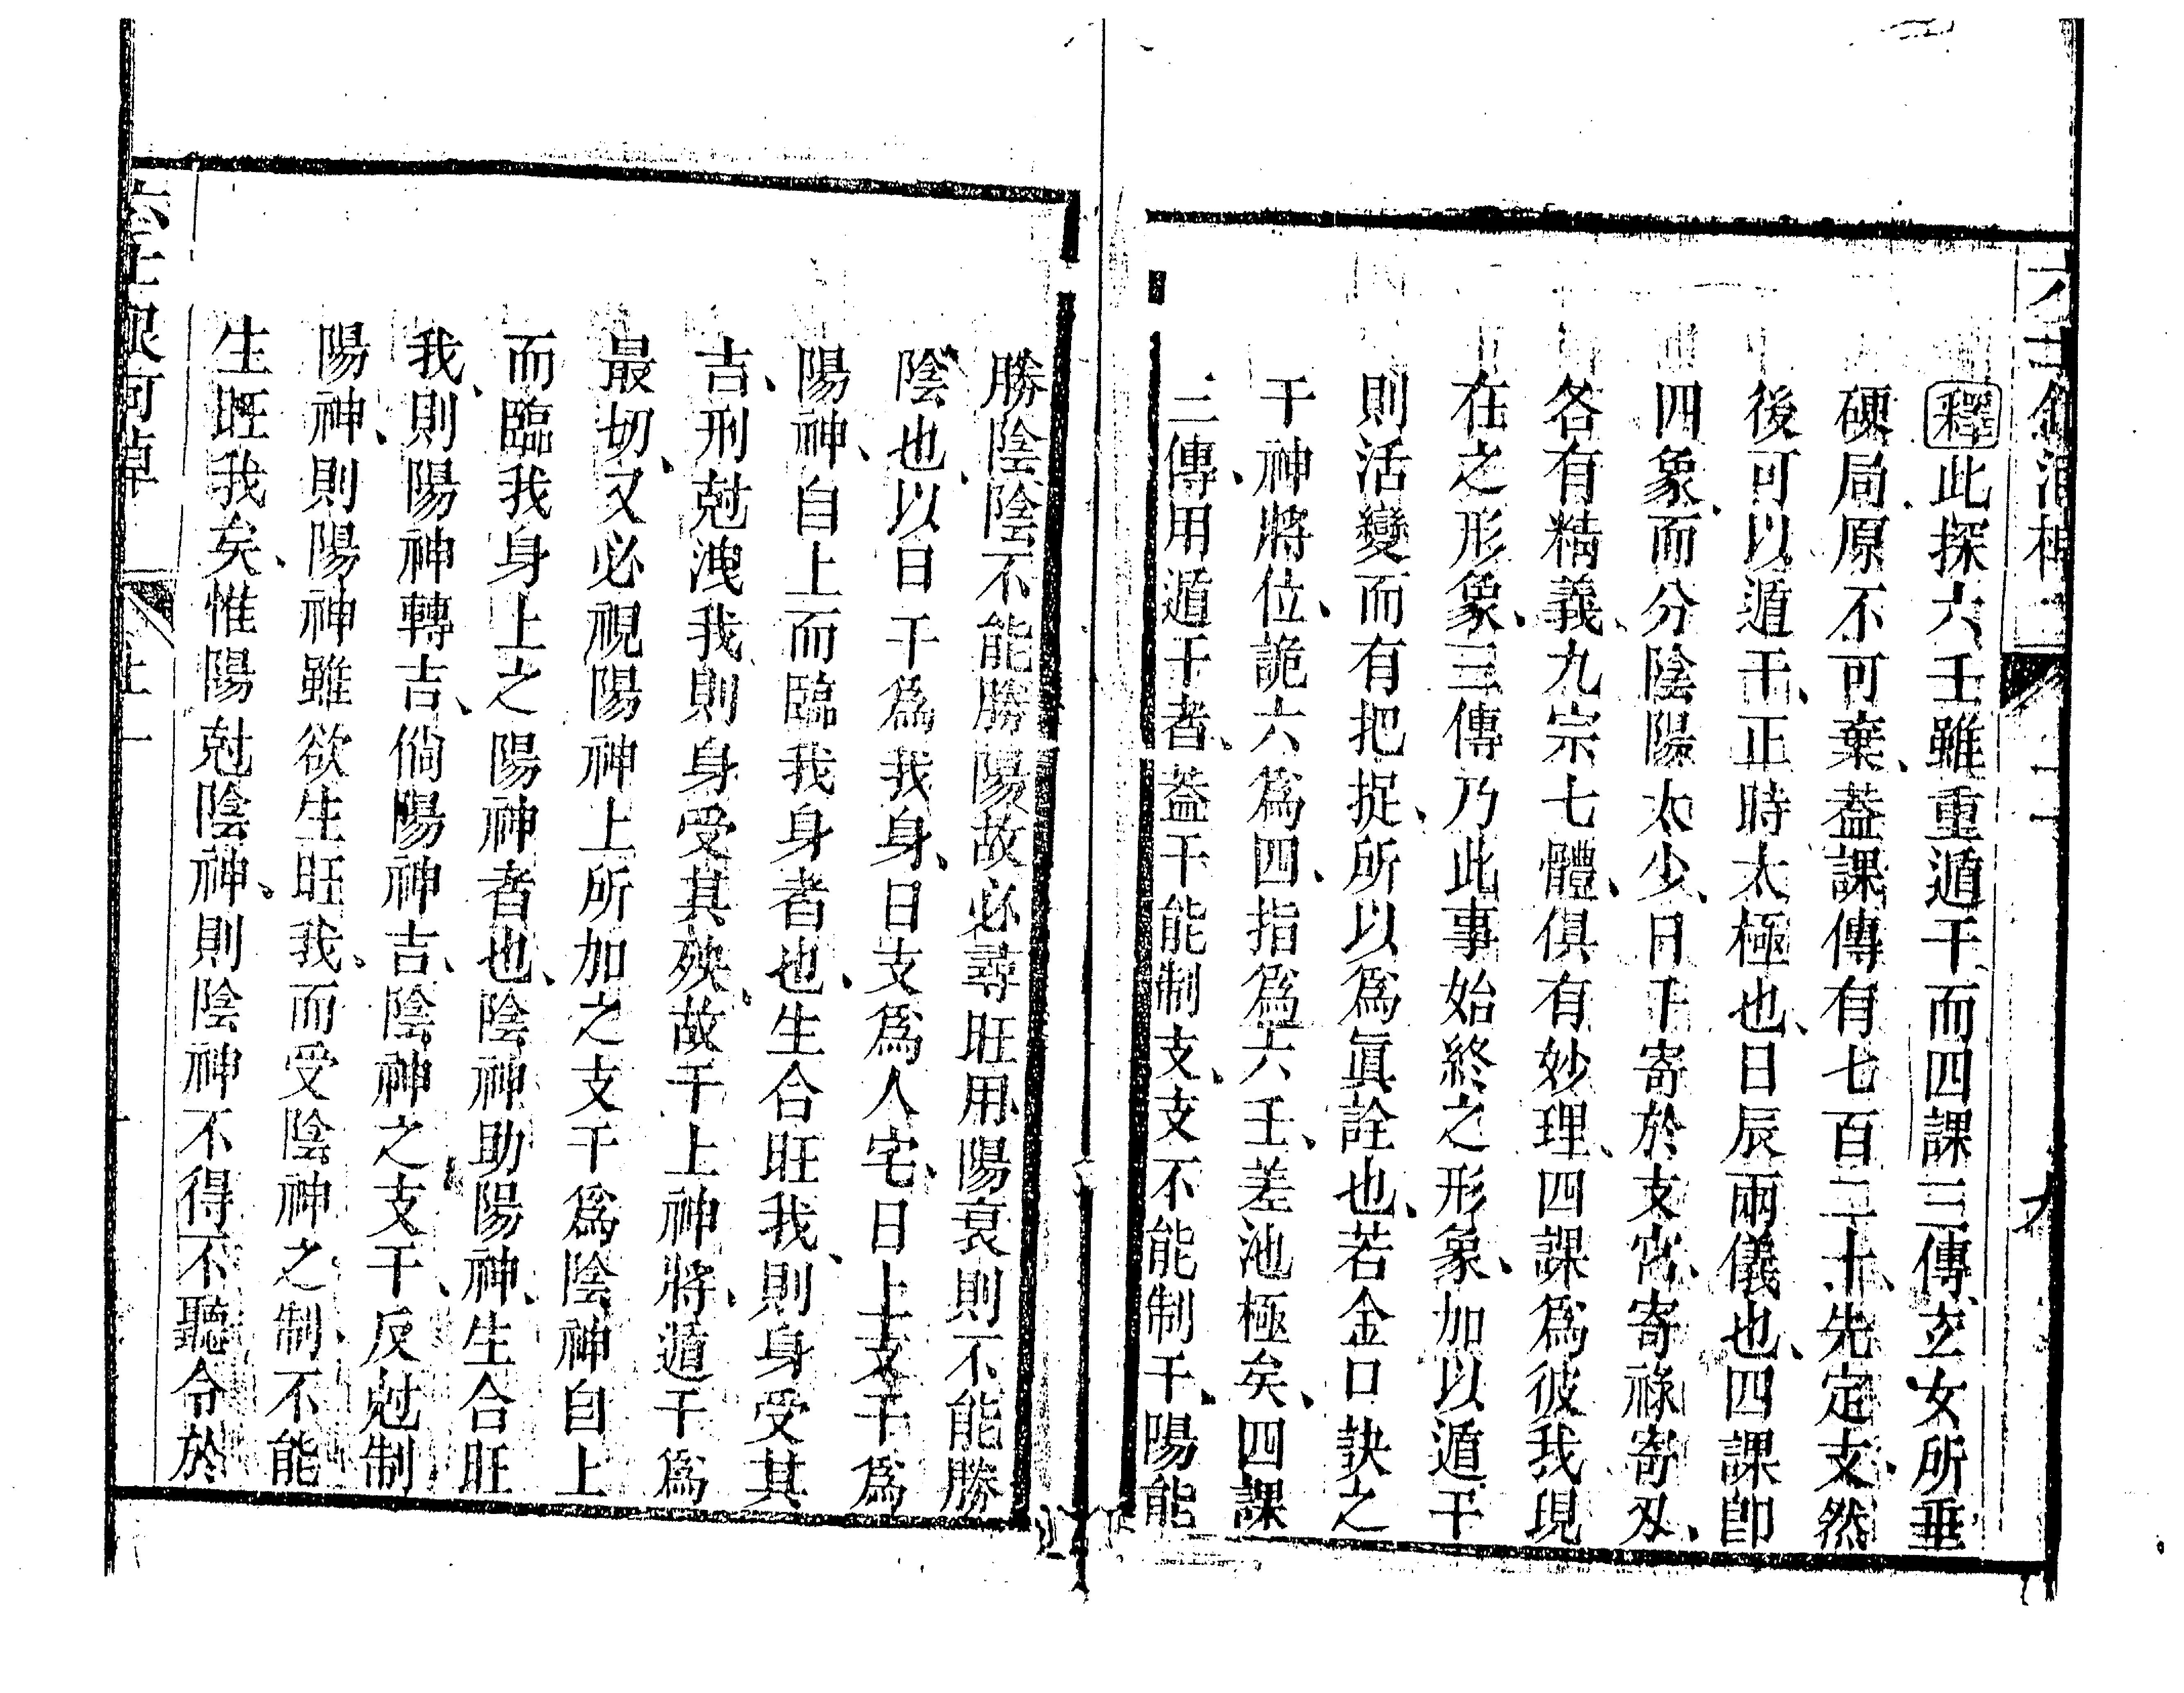 釋此探六壬雖重遁干而四課三傳、玄女所垂
硬局、原不可棄、葢課傳有七百二十、先定支、然
後可以遁干、正時太極也、日辰兩儀也、四課卽
四象、而分陰陽太少、日干寄於支宮、寄祿寄刃、
各有精義、九宗七體、俱有妙理、四課爲彼我現
在之形象、三傳乃此事始終之形象、加以遁干
則活變而有把捉、所以爲眞詮也、若金口訣之
干神將位、詭六爲四、指爲六壬、差池極矣、四課
三傳、用遁干者、葢干能制支、支不能制干、陽能
勝陰、陰不能勝陽、故必尋旺用、陽衰則不能勝
陰也、以日干爲我身、日支爲人宅、日上支干爲
陽神、自上而臨我身者也、生合旺我、則身受其
吉、刑尅洩我則身受其殃、故干上神將、遁干爲
最切、又必視陽神上所加之支干爲陰神、自上
而臨我身上之陽神者也、陰神助陽神、生合旺
我、則陽神轉吉、倘陽神吉、陰神之支干、反尅制
陽神、則陽神雖欲生旺我、而受陰神之制、不能
生旺我矣、惟陽尅陰神、則陰神不得不聽令於